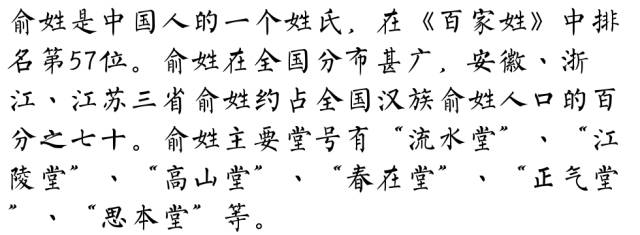 俞姓是中国人的一个姓氏，在《百家姓》中排
名第57位。俞姓在全国分布甚广，安徽、浙
江、江苏三省俞姓约占全国汉族俞姓人口的百
分之七十。俞姓主要堂号有“流水堂”、“江
陵堂”、“高山堂”、“春在堂”、“正气堂
”、“思本堂”等。